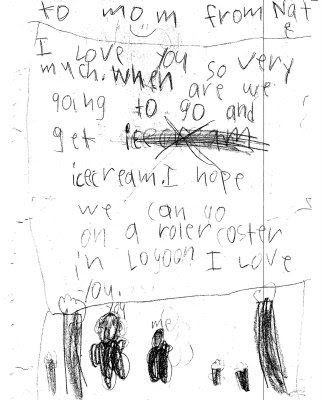 to mom from Nat
e
I Love you
so very
much. when are we
going to go and
get icecream
icecream. I hope
we can go
on a roler coster
in Logoon I Love
you.
you
me